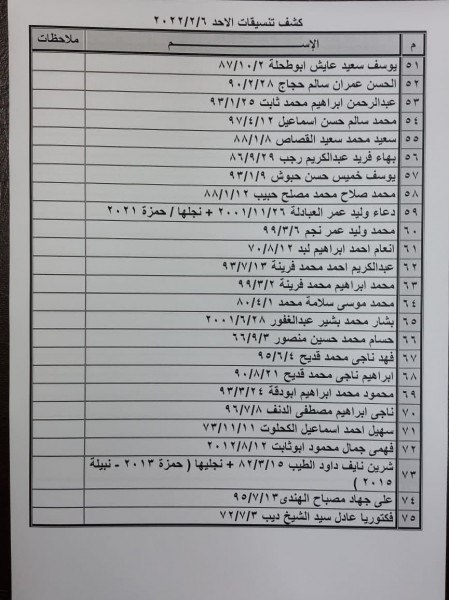 كشف تنسيقات الاحد ٢٠٢٢/٢/٦
م الإســـم ملاحظات
٥١ يوسف سعيد عايش ابوطحلة ٨٧/١٠/٢
٥٢ الحسن عمران سالم حجاج ٩٠/٢/٢٨
٥٣ عبدالرحمن ابراهيم محمد ثابت ٩٣/١/٢٥
٥٤ محمد سالم حسن اسماعيل ٩٧/٤/١٢
٥٥ سعيد محمد سعيد القصاص ٨٨/١/٨
٥٦ بهاء فريد عبدالكريم رجب ٨٦/٩/٢٩
٥٧ يوسف خميس حسن حبوش ٩٣/١/٩
٥٨ محمد صلاح محمد مصلح حبيب ٨٨/١/١٢
٥٩ دعاء وليد عمر العبادلة ٢٠٠١/١١/٢٦ + نجلها / حمزة ٢٠٢١
٦٠ محمد وليد عمر نجم ٩٩/٣/٦
٦١ انعام احمد ابراهيم لبد ٧٠/٨/١٢
٦٢ عبدالكريم احمد محمد فرينة ٩٣/٧/١٣
٦٣ محمد ابراهيم محمد فرينة ٩٩/٣/٢
٦٤ محمد موسى سلامة محمد ٨٠/٤/١
٦٥ بشار محمد بشير عبدالغفور ٢٠٠١/٦/٢٨
٦٦ حسام محمد حسين منصور ٦٦/٩/٣
٦٧ فهد ناجى محمد قديح ٩٥/٦/٤
٦٨ ابراهيم ناجى محمد قديح ٩٠/٨/٢١
٦٩ محمود محمد ابراهيم ابودقة ٩٣/٣/٢٤
٧٠ ناجى ابراهيم مصطفى الدنف ٩٦/٧/٨
٧١ سهيل احمد اسماعيل الكحلوت ٧٣/١١/١١
٧٢ فهمى جمال محمود ابوثابت ٢٠١٢/٨/١٢
٧٣ شرين نايف داود الطيب ٨٢/٣/١٥ + نجليها ( حمزة ٢٠١٣ - نبيلة
٢٠١٥ )
٧٤ على جهاد مصباح الهندى ٩٥/٧/١٣
٧٥ فكتوريا عادل سيد الشيخ ديب ٧٢/٧/٣